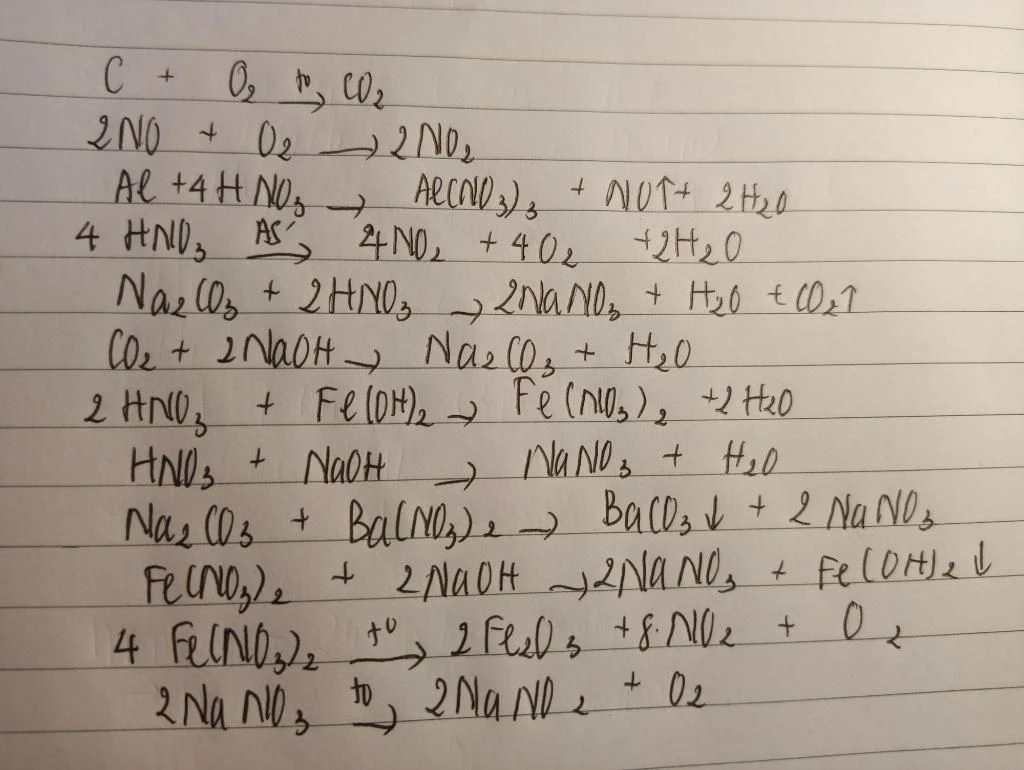 C + O₂ →(t⁰) CO₂
2NO + O₂ → 2NO₂
Al + 4HNO₃ → Al(NO₃)₃ + NO↑ + 2H₂O
4 HNO₃ →(AS') 4NO₂ + 4O₂ + 2H₂O
Na₂CO₃ + 2HNO₃ → 2NaNO₃ + H₂O + CO₂↑
CO₂ + 2NaOH → Na₂CO₃ + H₂O
2 HNO₃ + Fe(OH)₂ → Fe(NO₃)₂ + 2H₂O
HNO₃ + NaOH → NaNO₃ + H₂O
Na₂CO₃ + Ba(NO₃)₂ → BaCO₃↓ + 2 NaNO₃
Fe(NO₃)₂ + 2NaOH → 2NaNO₃ + Fe(OH)₂↓
4 Fe(NO₃)₂ →(t⁰) 2Fe₂O₃ + 8.NO₂ + O₂
2NaNO₃ →(t⁰) 2NaNO₂ + O₂